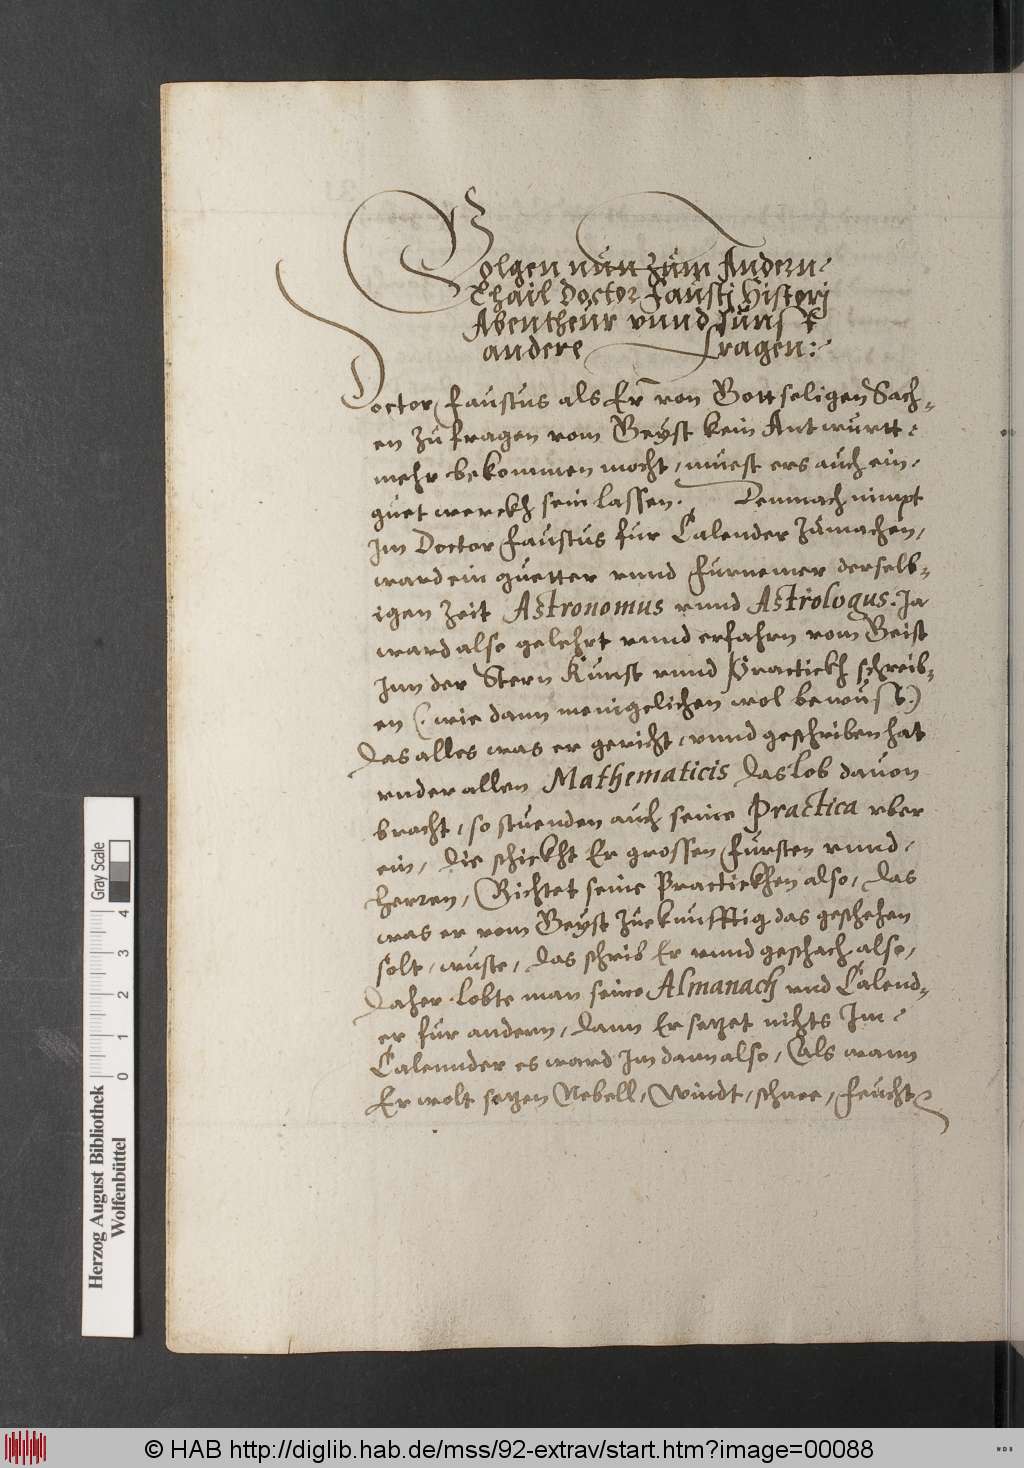 Volgen nun zum Andern
Thail Doctor Faustj Historj
Abentheur vnnd sunst
andere Fragen:
Doctor Faustus als Er von Gottseligen Sach-
en zu fragen vom Geyst kein Antwurtt
mehr bekommen mocht, muest ers auch ein
guet werckh sein lassen. Demnach nimpt
Im Doctor Faustus fur Calender zumachen,
ward ein guetter vnnd furnemer derselb-
igen Zeit Astronomus vnnd Astrologus. Ja
ward also gelehrt vnnd erfahrn vom Geist
Inn der Stern Kunst vnnd Practickh schreib-
en (: wie dann menigelichen wol bewust :)
Das alles was er gericht, vnnd geschriben hat
vnder allen Mathematicis das lob davon
bracht, so stuenden auch seine Practica vber
ein, die schickht Er grossen Fursten vnnd
herren, Richtet seine Practickhen also, das
was er vom Geyst zuekunfftig das geschehen
solt, wuste, das schrib Er vnnd geschach also,
daher lobte man seine Almanach vnd Calend-
er fur andern, dann Er setzet nichts Im
Calennder es ward Im dann also, Als wann
Er wolt setzen Nebell, Windt, schnee, feucht
Herzog August Bibliothek
Wolfenbüttel
Gray Scale
0 1 2 3 4
© HAB http://diglib.hab.de/mss/92-extrav/start.htm?image=00088